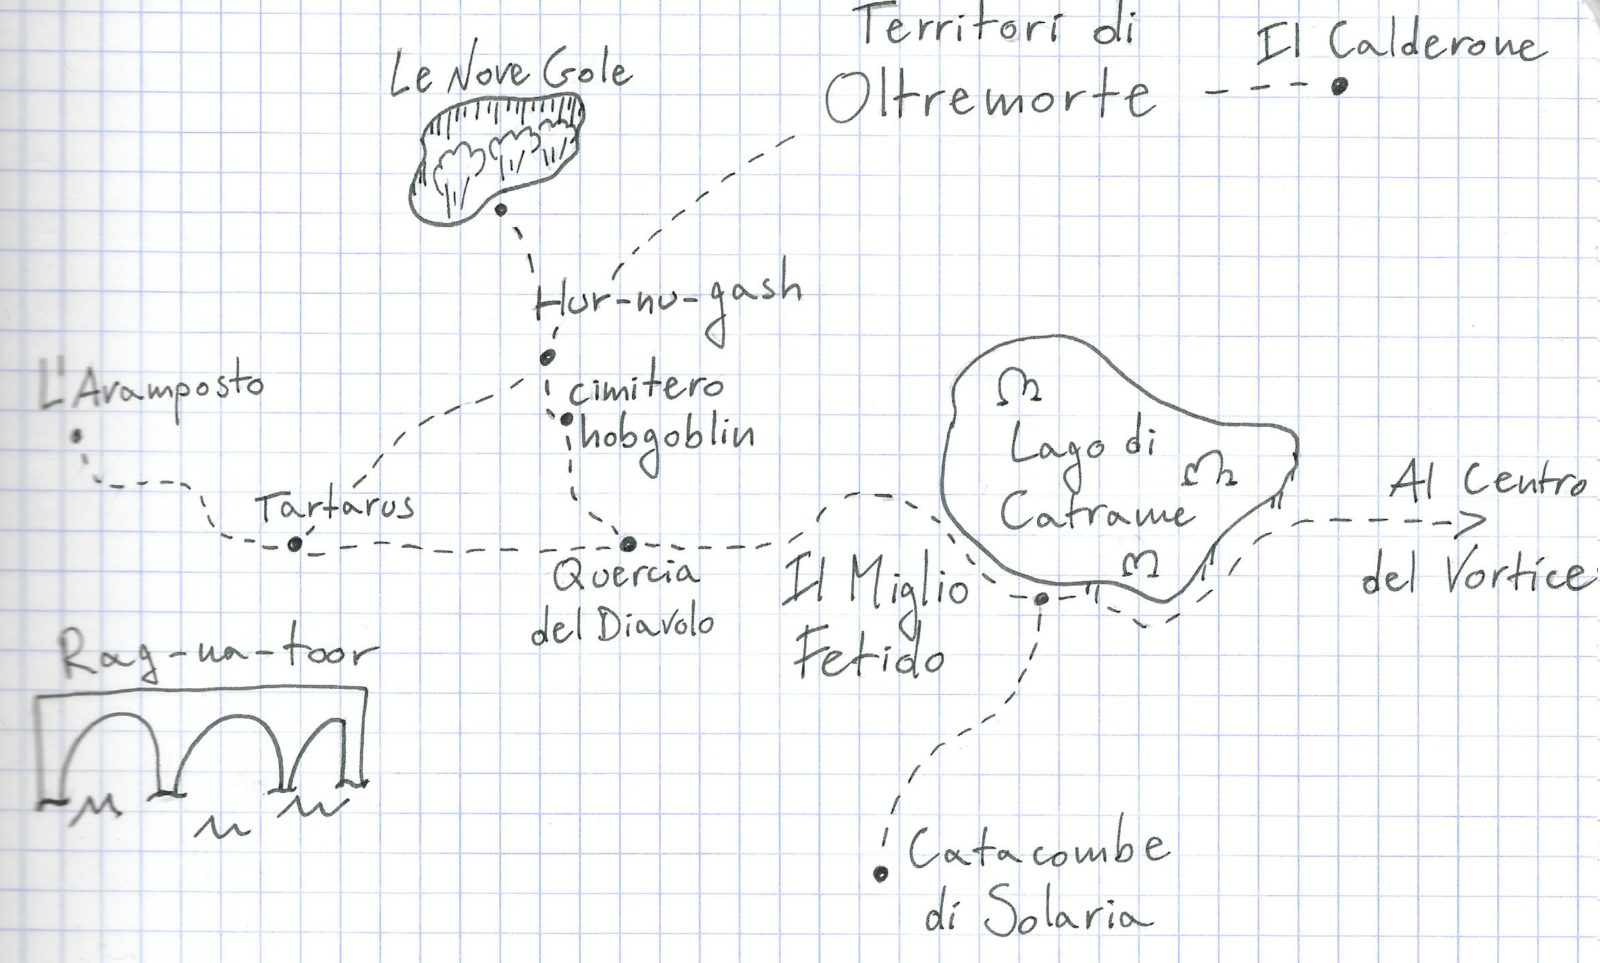 Territori di
Oltremorte
Il Calderone
Le Nove Gole
Hur-nu-gash
L'Avamposto
cimitero
hobgoblin
Tartarus
Quercia
del Diavolo
Il Miglio
Fetido
Lago di
Catrame
Al Centro
del Vortice
Rag-na-toor
Catacombe
di Solaria